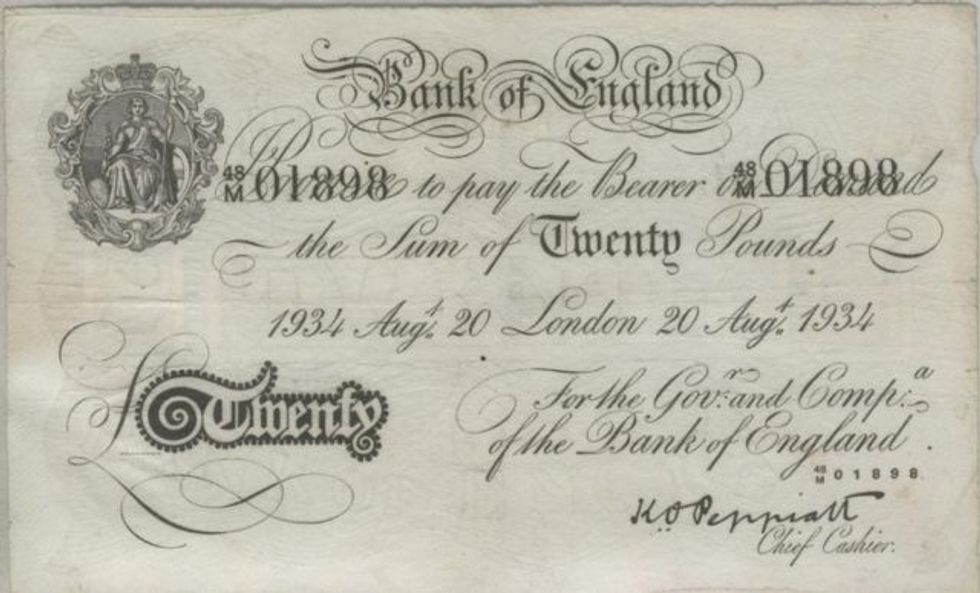 Bank of England
48/M 01898 48/M 01898
I Promise to pay the Bearer on Demand
the Sum of Twenty Pounds
1934 Augt. 20 London 20 Augt. 1934
£ Twenty
For the Govr. and Compa.
of the Bank of England.
48/M 01898
K O Peppiatt
Chief Cashier.